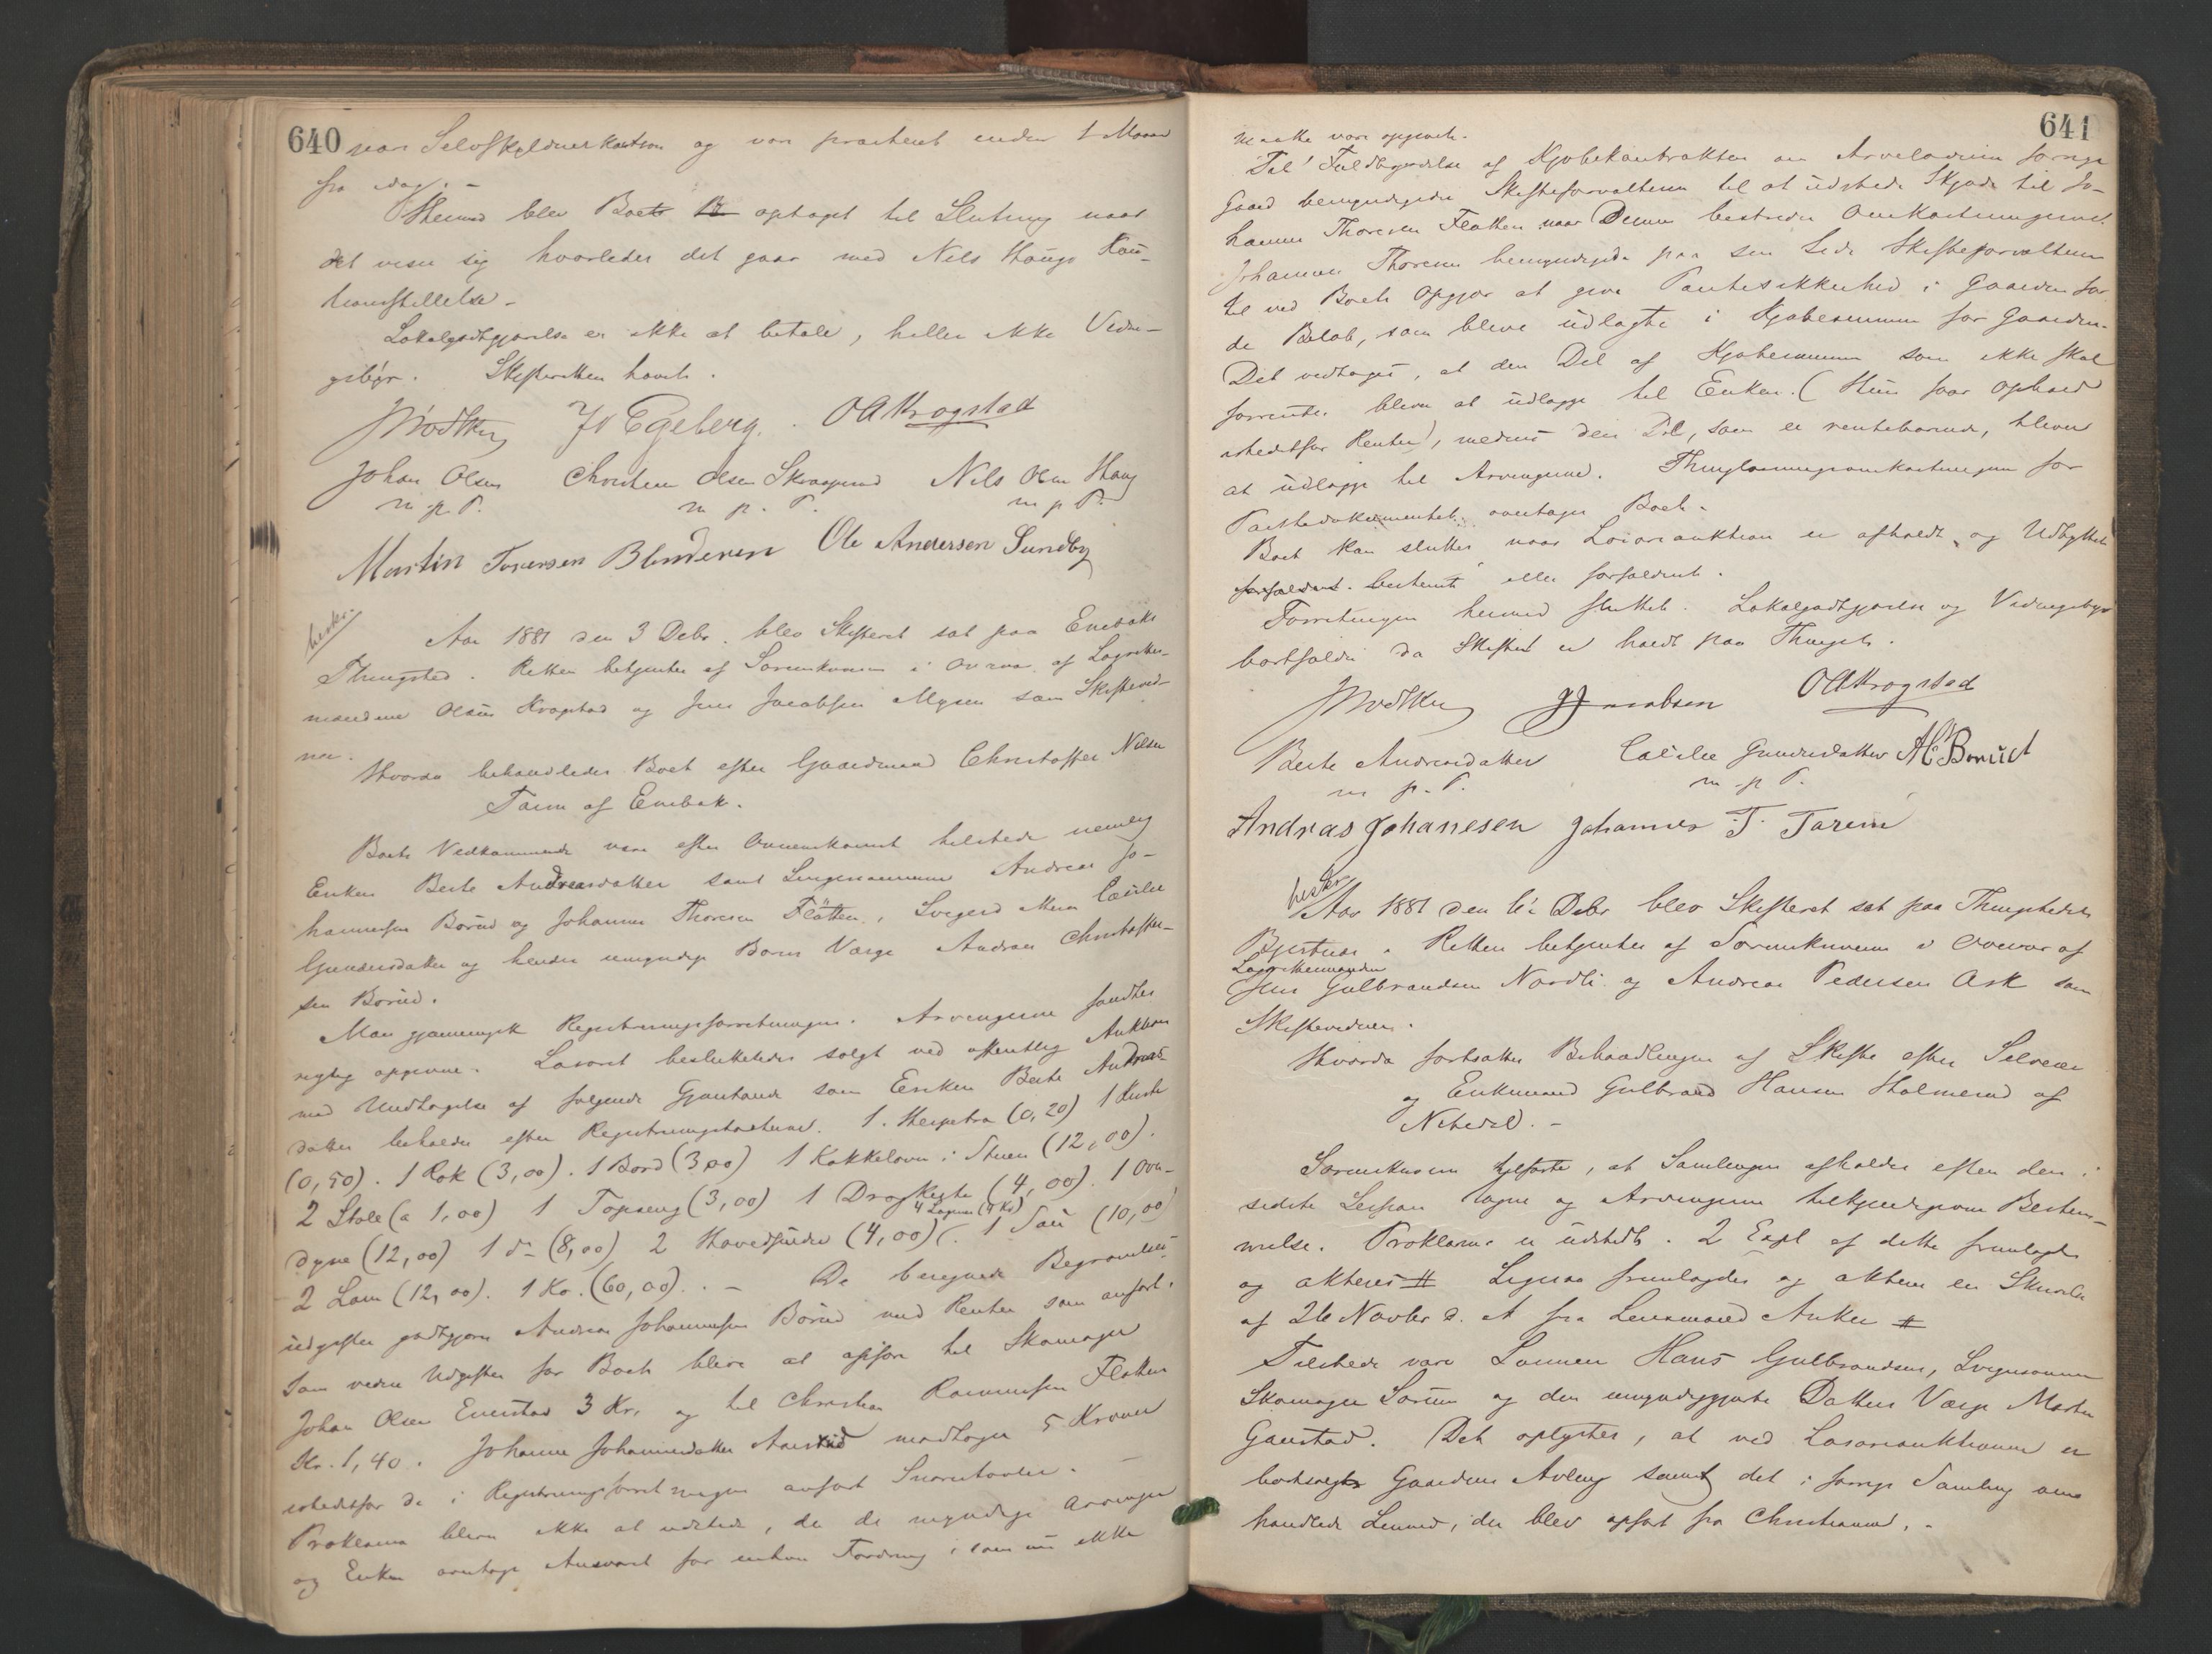 640
var Selvskyldnerkaution og var præsteret inden 1 Maaned
fra idag. -
Hermed blev Boet optaget til Slutning naar
det viser sig hvorledes det gaar med Nils Haugs Kau-
tionsstillelse -
Lokalgodtgjørelse er ikke at betale, heller ikke Vidne-
gebyr. Skifteretten hævet.
O A Krogstad
Jv Egeberg.
Johan Olsen Christen Olsen Nils Olsen Haug
m. p. P. m. p. P. m p P.
Martin Iversen Blinderen Ole Andersen Sundby
Aar 1881 den 3 Debr. blev Skifteret sat paa Enebaks
Thingsted. Retten betjentes af Sorenskriveren i Overvær af Lagrettes-
mændene Olaus Krogstad og Jens Jacobsen Mysen som Skiftevid-
ner.
Hvorda behandledes Boet efter Gaardmand Christoffer Nilsen
Tarm af Enebak.
Boets Vedkommende vare efter Overenskomst tilstede nemlig
Enken Berte Andreasdatter samt Svigersønnerne Andreas Jo-
hannesen Børud og Johannes Thoresen Flatten, Svigerd Cæcilie
Gundersdatter og hendes umyndige Børns Værge Andreas Christoffer-
sen Børud.
Man gjennemgik Registreringsforretningen. Arvingerne fandtes
rigtig opgivne. Løsøret besluttedes solgt ved offentlig Auktion
med Undtagelse af følgende Gjenstande som Enken Berte Andreas-
datter beholder efter Registreringstaxterne. 1 (0,20) 1 Kiste
(0,50). 1 Rok (3,00). 1 Bord (3,00) 1 Kakkelovn i Stuen (12,00).
2 Stole (a 1,00) 1 Topseng (3,00) 1 Dragkiste (4,00). 1 Over-
4 Lagner (4 Kr)
dyne (12,00) 1 do (8,00) 2 Hovedpuder (4,00). 1 Sau (10,00)
2 Lam (12,00). 1 Ko. (60,00). - De beregnede Begravelses-
udgifter godtgjøres Andreas Johannesen Børud med Renter som anført.
Som videre Udgifter for Boet bliver at opføre til Skomager
Johan Olsen Enerstad 3 Kr. og til Christian Rasmussen Flatten
Kr. 1,40. Johanne Johannesdatter modtager 5 Kroner
istedetfor de i Registreringsforretningen anført
Proklama bliver ikke at udstede, da de myndige Arvinger
og Enken overtage Ansvaret for enhver Fordring, som nu ikke
641
maatte være opgivet.
Til Fuldbyrdelse af Kjøbekontrakten om Arveladerens forrige
Gaard bemyndigedes Skifteforvalteren til at udstede Skjøde til Jo-
hannes Thoresen Flatten naar Denne bestrider Omkostningerne.
Johannes Thoresen bemyndigede paa sin Side Skifteforvalteren
til ved Boets Opgjør at give Pantesikkerhed i Gaarden for
de Beløb, som bleve udlagte i Kjøbesummen for Gaarden.
Det vedtoges, at den Del af Kjøbesummen som ikke skal
forrentes bliver at udlægge til Enken. (Hun faar Ophold
istedetfor Renter), medens den Del, som er rentebærende, bliver
at udlægge til Arvingerne. Thinglæsningsomkostningen for
Pantedokumentet overtager Boet.
Boet kan sluttes naar Løsøreauktion er afholdt og Udbyttet
forfaldent. bestemt eller forfaldent.
Forretningen hermed sluttet. Lokalgodtgjørelse og Vidnegebyr
bortfalder da Skiftet er holdt paa Thinget.
J Jacobsen O A Krogstad
Berte Andreasdatter Cæcilie Gundersdatter A C Børud
m. p. P. m. p P.
Andras Johanesen Johannes T. Tarem
Aar 1881 den 6 Debr blev Skifteret sat paa Thingstedet
Bjertnæs. Retten betjentes af Sorenskriveren i Overvær af
Lagrettemændene
Jens Gulbrandsen Nordli og Andreas Pedersen Ask som
Skiftevidner.
Hvorda fortsattes Behandlingen af Skifte efter Selveier
og Enkemand Gulbrand Hansen Holmerud af
Nitedal. -
Sorenskriveren tilførte, at Samlingen afholdes efter den i
sidste Session tagne og Arvingerne tilkjendegivne Bestem-
melse. Proklama er udstedt. 2 Expl af dette fremlagdes
og akteres # Ligesaa fremlagdes og akteres en Skrivelse
af 26 Novbr d. A fra Lensmand Anker #
Tilstede vare Sønnen Hans Gulbrandsen, Svigersønnen
Skomager Sørum og den umyndiggjorte Datters Værge Martin
Gaustad. Det oplystes, at ved Løsøreauktionen er
bortsolgt Gaardens Avling samt det i forrige Samling om-
handlede der blev opført fra Christiania. -